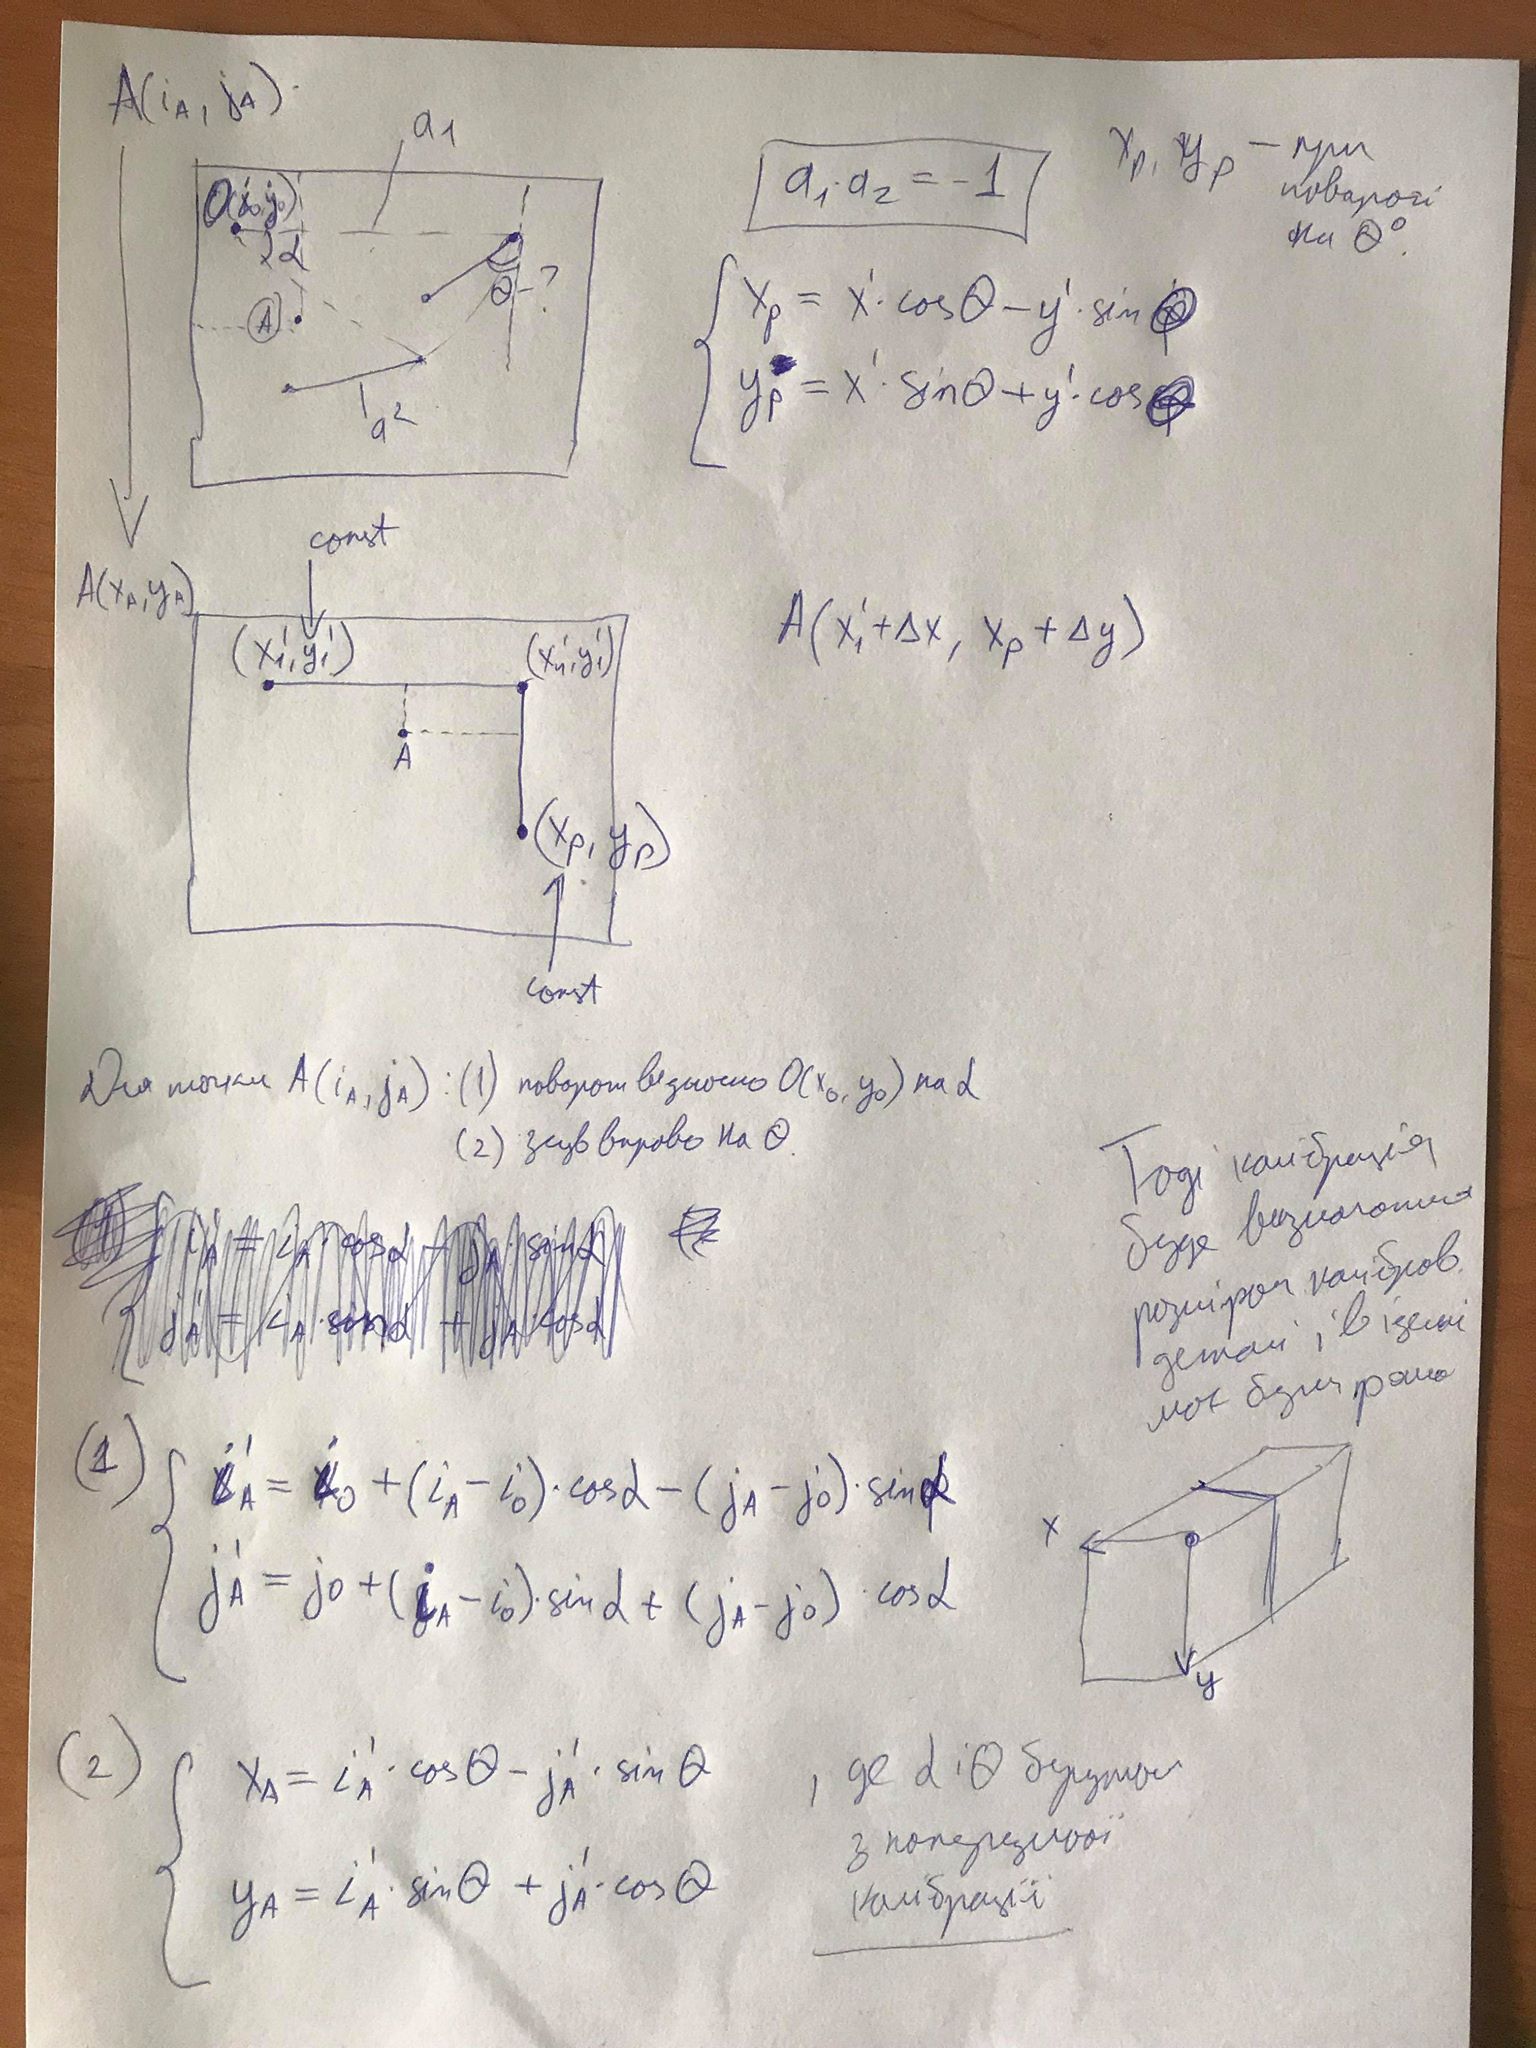 A(iA, jA)
a1
O(x'0, y'0)
α
A
θ - ?
a2
a1 · a2 = -1
xp, yp — при
повороті
на θ°.
xp = x' · cosθ - y' · sinθ
yp = x' · sinθ + y' · cosθ
const
A(xA, yA)
(x'1, y'1)
(x'n, y'1)
A
(xp, yp)
const
A(x'1 + Δx, xp + Δy)
Для точки A(iA, jA): (1) поворот відносно O(x0, y0) на α
(2) зсув вправо на θ.
Тоді калібрація
буде визначатися
розміром калібров.
деталі, і в ідеалі
має бути
(1) i'A = i0 + (iA - i0) · cosα - (jA - j0) · sinα
j'A = j0 + (iA - i0) · sinα + (jA - j0) · cosα
x
y
(2) xA = i'A · cosθ - j'A · sinθ
yA = i'A · sinθ + j'A · cosθ
, де α і θ беруться
з попередньої
калібрації